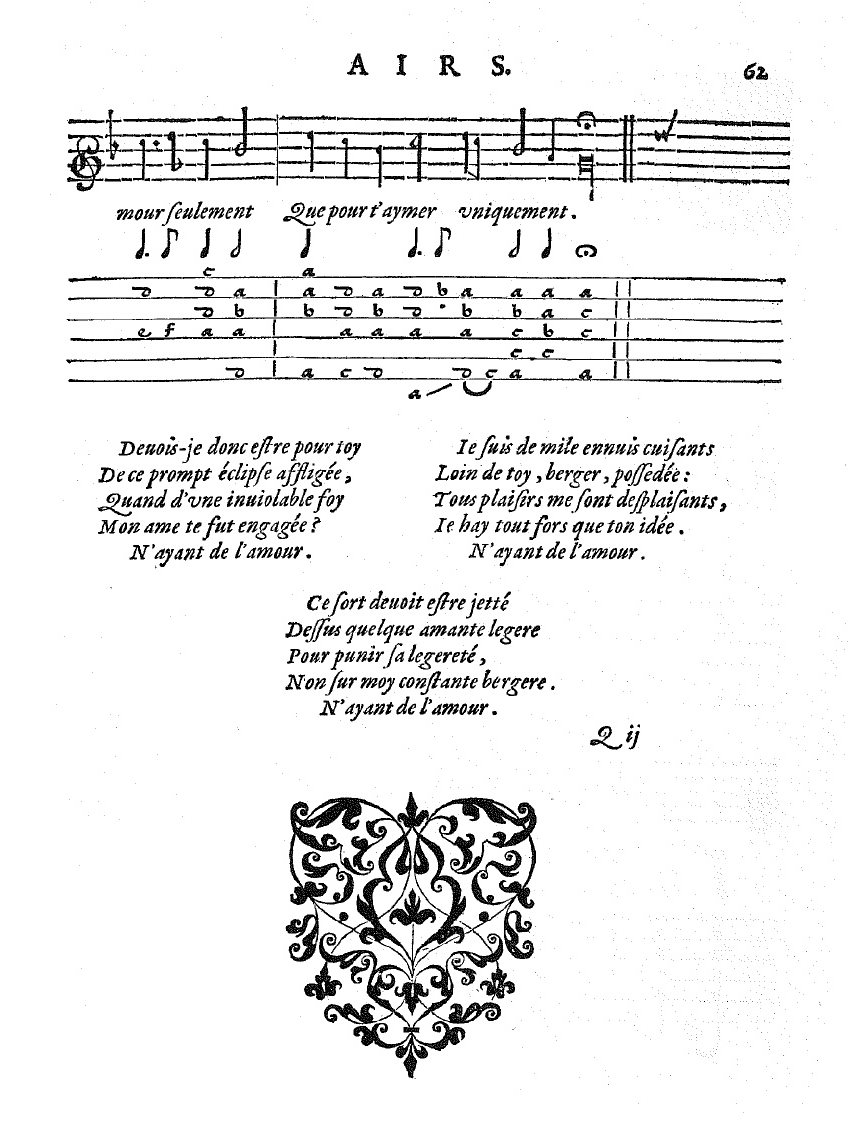 AIRS.
62
mour ſeulement Que pour t'aymer vniquement.
c a
d d a a d a d b a a a a
d b b d b d b b a c
e f a a a a a a c b c
c c
d a c d d c a a
a
Deuois-je donc eſtre pour toy
De ce prompt éclipſe affligée,
Quand d'vne inuiolable foy
Mon ame te fut engagée?
N'ayant de l'amour.
Ie ſuis de mile ennuis cuiſants
Loin de toy, berger, poſſedée:
Tous plaiſirs me ſont deſplaiſants,
Ie hay tout fors que ton idée.
N'ayant de l'amour.
Ce ſort deuoit eſtre jetté
Deſſus quelque amante legere
Pour punir ſa legereté,
Non ſur moy conſtante bergere.
N'ayant de l'amour.
Q ij